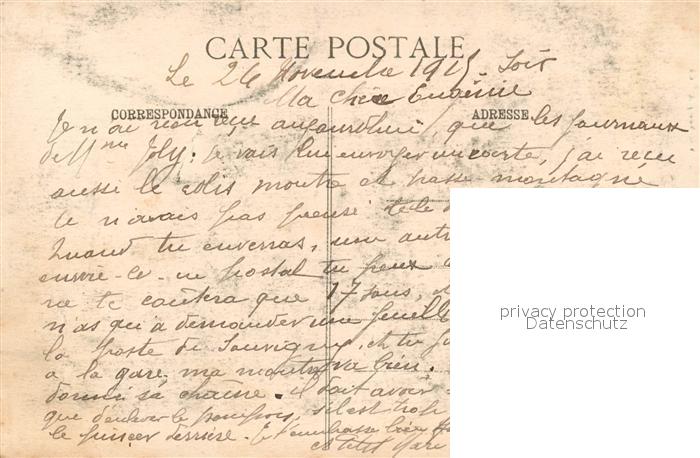 CARTE POSTALE
Le 26 Novembre 1915 Soir
Ma chère Eugénie
CORRESPONDANCE
ADRESSE
Je n'ai rien reçu aujourd'hui, que les journaux
de Mme Joly, je vais lui envoyer une carte, j'ai reçu
aussi le colis montre et passe montagne
Je n'avais pas pensé de le
Quand tu enverras, un aut
envoie-le en postal tu peux
ne te coûtera que 17 sous,
n'as qu'a demander une feuille
la poste de Souvigny, et tu
a la gare. ma montre va bien.
donné sa chaîne. il doit avoir
que d'enlever le s'il est trop
le pincer derrière. Et t'embrasse bien
et petit
privacy protection
Datenschutz